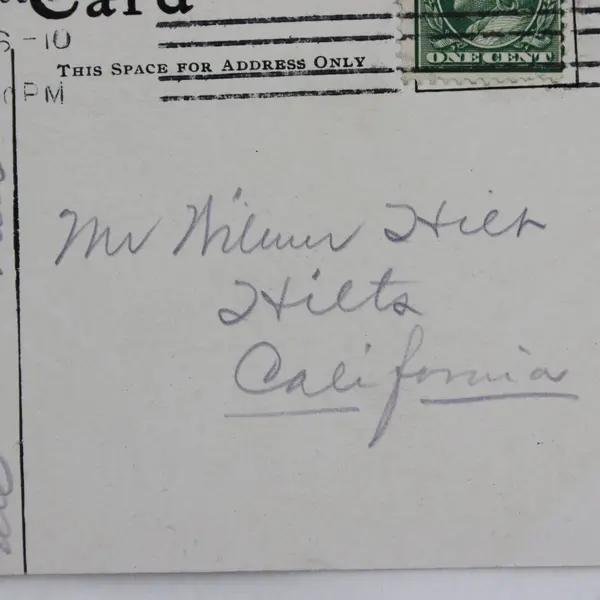 Card
-10
PM
THIS SPACE FOR ADDRESS ONLY
ONE CENT
Mr Wilmer Hilt
Hilts
California